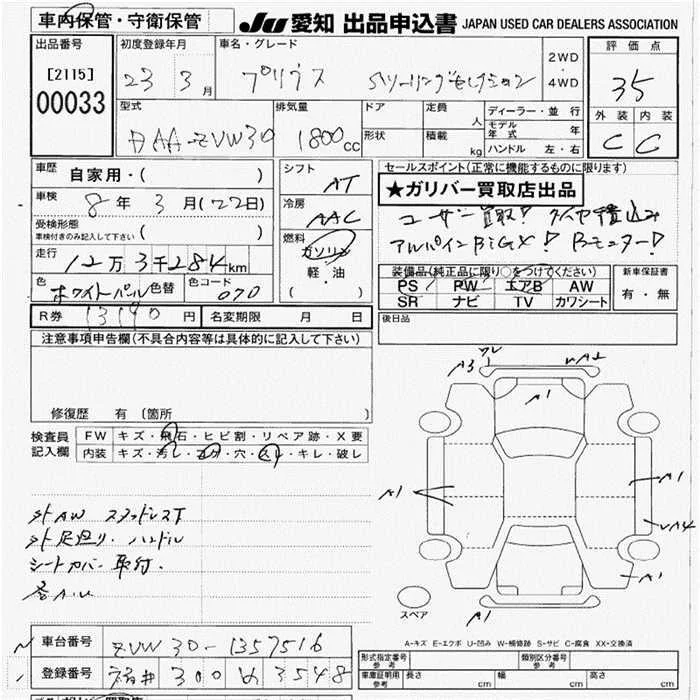 車内保管・守衛保管
JU 愛知 出品申込書 JAPAN USED CAR DEALERS ASSOCIATION
出品番号
[2115]
00033
初度登録年月
23 3月
車名・グレード
プリウス Sツーリングセレクション
2WD
・
4WD
評価点
35
外装 内装
C C
型式
DAA-ZVW30
排気量
1800cc
ドア
形状
定員 人
積載 kg
ディーラー・並行
モデル年式 年
ハンドル 左・右
車歴
自家用・( )
車検
8年 3月(22日)
受検形態
車検付きのみ記入して下さい ( )
走行
12万3千284km
色
ホワイトパール 色替
色コード
070
シフト
AT
冷房
AAC
燃料
ガソリン
軽・油
( )
セールスポイント(正常に機能するものに限ります)
★ガリバー買取店出品
ユーザー買取! タイヤ積込み
アルパインBIGX! Bモニター!
装備品(純正品に限り○をつけてください)
PS PW エアB AW
SR ナビ TV カワシート
新車保証書
有・無
R券 13190円 名変期限 月 日
後日品
注意事項申告欄(不具合内容等は具体的に記入して下さい)
修復歴 有 〔箇所 〕
検査員記入欄
FW キズ・飛石・ヒビ割・リペア跡・X要
内装 キズ・汚れ・コゲ・穴・スレ・キレ・破レ
外AW スタッドレスT
外足廻り、ハンドル
シートカバー取付.
A3 A2
A1
A1 A1
A4
A1
A1
スペア
A-キズ E-エクボ U-凹み W-補修跡 S-サビ C-腐食 XX-交換済
車台番号 ZVW30-1357516
登録番号 福井 300 め 3548
形式指定番号 参考
類別区分番号 参考
車庫証明用 参考 長さ cm 幅 cm 高さ cm